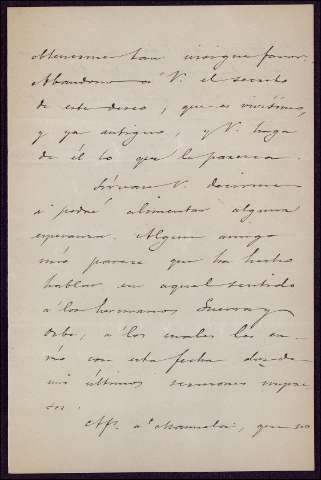 obtenerme tan insigne favor.
Abandono a V. el secreto
de este deseo, que es vivísimo,
y ya antiguo, y V. haga
de él lo que le parezca.
Sírvase V. decirme
si podré alimentar alguna
esperanza. Algun amigo
mío parece que ha hecho
hablar en aquel sentido
á los hermanos Guerra y
Orbe, á los cuales les en-
vío con esta fecha dos de
mis últimos sermones impre-
sos.
Af. a Manuela, que